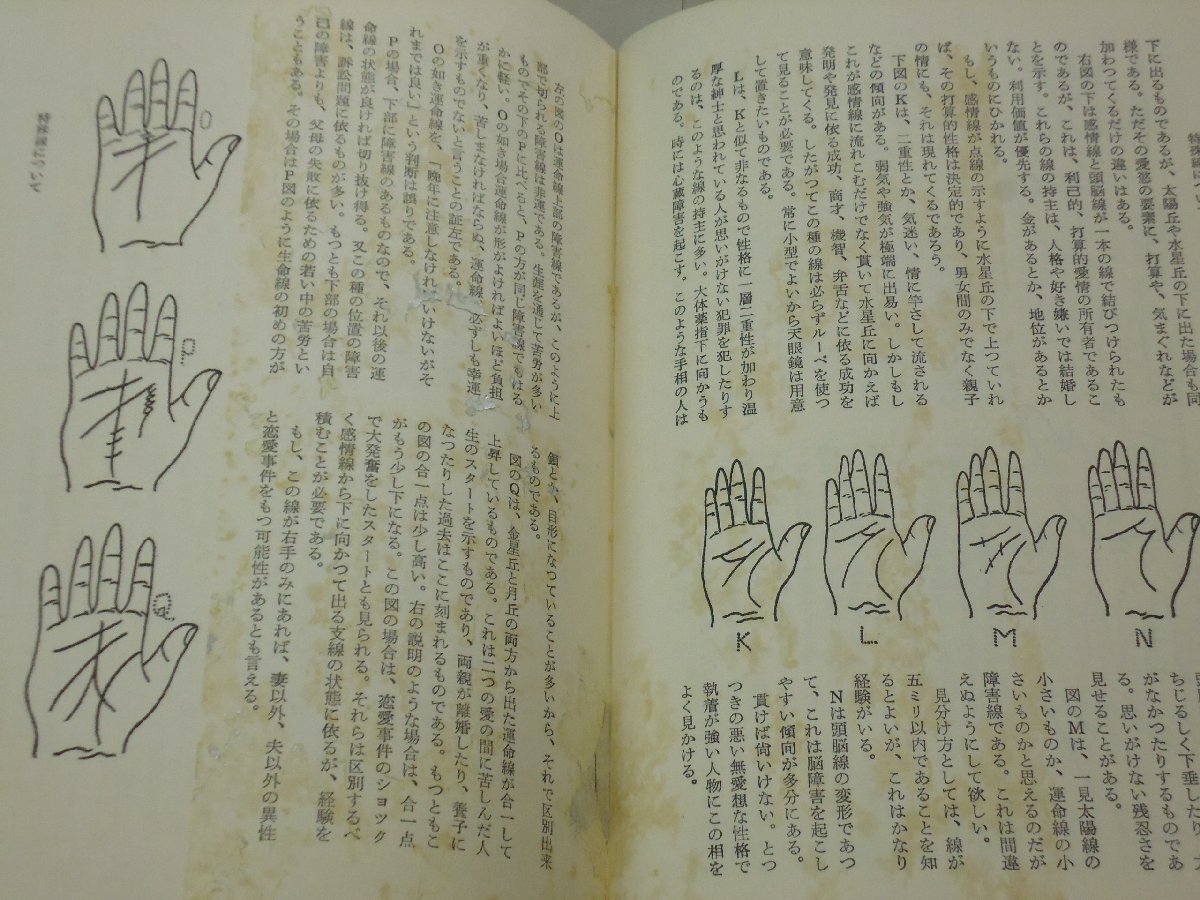 特殊線について
下に出るものであるが、太陽丘や水星丘の下に出た場合も同
様である。ただその愛慾の要素に、打算や、気まぐれなどが
加わつてくるだけの違いはある。
右図の下は感情線と頭脳線が一本の線で結びつけられたも
のであるが、これは、利己的、打算的愛情の所有者であるこ
とを示す。これらの線の持主は、人格や好き嫌いでは結婚し
ない。利用価値が優先する。金があるとか、地位があるとか
いうものにひかれる。
もし、感情線が点線の示すように水星丘の下で上つていれ
ば、その打算的性格は決定的であり、男女間のみでなく親子
の情にも、それは現れてくるであろう。
下図のKは、二重性とか、気迷い、情に竿さして流される
などの傾向がある。弱気や強気が極端に出易い。しかしもし
これが感情線に流れこむだけでなく貫いて水星丘に向かえば
発明や発見に依る成功、商才、機智、弁舌などに依る成功を
意味してくる。したがつてこの種の線は必らずルーペを使つ
て見ることが必要である。常に小型でよいから天眼鏡は用意
して置きたいものである。
Lは、Kと似て非なるもので性格に一層二重性が加わり温
厚な紳士と思われている人が思いがけない犯罪を犯したりす
るのは、このような線の持主に多い。大体薬指下に向かうも
のである。時には心臓障害を起こす。このような手相の人は
K
L
M
N
ちじるしく下垂したり、
がなかつたりするものであ
る。思いがけない残忍さを
見せることがある。
図のMは、一見太陽線の
小さいものか、運命線の小
さいものかと思えるのだが
障害線である。これは間違
えぬようにして欲しい。
見分け方としては、線が
五ミリ以内であることを知
るとよいが、これはかなり
経験がいる。
Nは頭脳線の変形であつ
て、これは脳障害を起こし
やすい傾向が多分にある。
貫けば尚いけない。とつ
つきの悪い無愛想な性格で
執着が強い人物にこの相を
よく見かける。
左の図のOは運命線上部の障害線であるが、このように上
部で切られる障害線は非運である。生涯を通じて苦労が多い
ものでその下のPに比べると、Pの方が同じ障害線でもはる
かに軽い。Oの如き場合運命線が形がよければよいほど負担
が重くなり、苦しまなければならぬ、運命線、必ずしも幸運
を示すものでないと言うことの証左である。
Oの如き運命線を、「晩年に注意しなければいけないがそ
れまでは良い」という判断は誤りである。
Pの場合、下部に障害線のあるものなので、それ以後の運
命線の状態が良ければ切り抜け得る。又この種の位置の障害
線は、訴訟問題に依るものが多い。もつとも下部の場合は自
己の障害よりも、父母の失敗に依るための若い中の苦労とい
うこともある。その場合はP図のように生命線の初めの方が
鎖とか、目形になつていることが多いから、それで区別出来
るものである。
図のQは、金星丘と月丘の両方から出た運命線が合一して
上昇しているものである。これは二つの愛の間に苦しんだ人
生のスタートを示すものであり、両親が離婚したり、養子に
なつたりした過去はここに刻まれるものである。もつともこ
の図の合一点は少し高い。右の説明のような場合は、合一点
がもう少し下になる。この図の場合は、恋愛事件のショック
で大発奮をしたスタートとも見られる。それらは区別するべ
く感情線から下に向かつて出る支線の状態に依るが、経験を
積むことが必要である。
もし、この線が右手のみにあれば、妻以外、夫以外の異性
と恋愛事件をもつ可能性があるとも言える。
O
P
Q
特殊線について